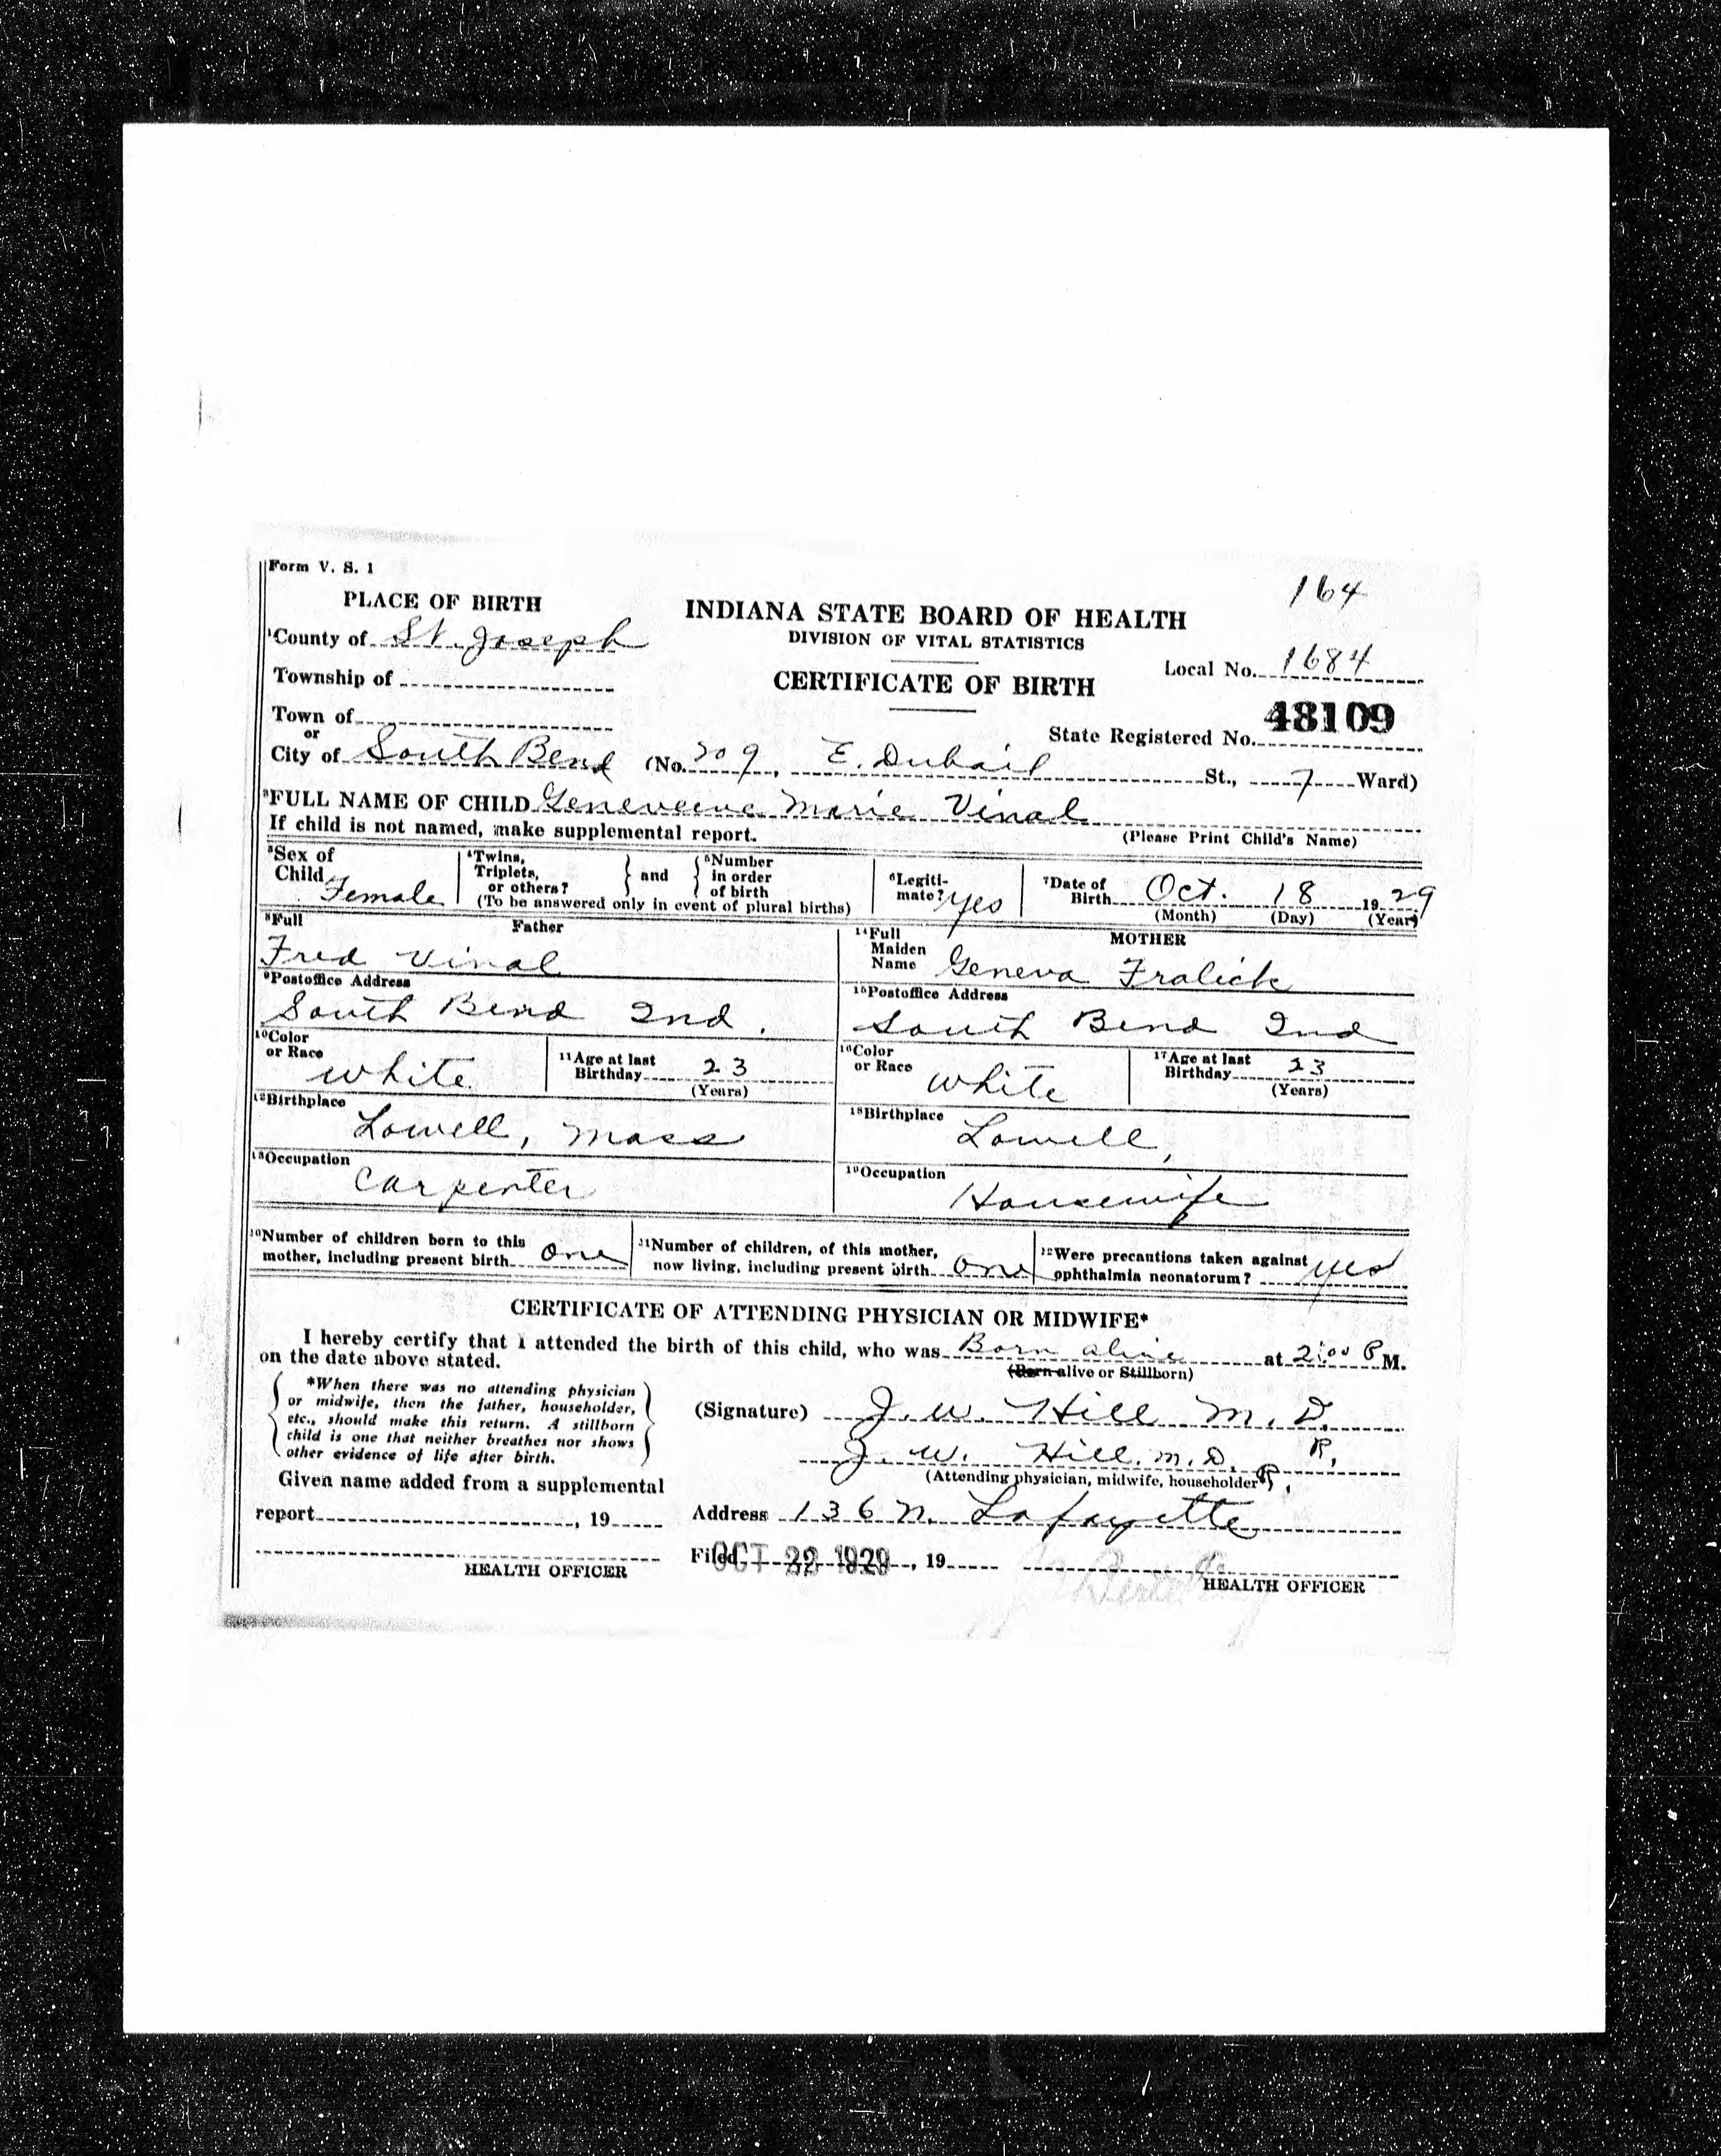 Form V. S. 1
164
PLACE OF BIRTH
INDIANA STATE BOARD OF HEALTH
¹County of St. Joseph
DIVISION OF VITAL STATISTICS
Local No. 1684
Township of
CERTIFICATE OF BIRTH
Town of
or
48109
State Registered No.
City of South Bend (No. 209, E. Dubail St., 7 Ward)
²FULL NAME OF CHILD Marie Vinal
If child is not named, make supplemental report. (Please Print Child's Name)
³Sex of Child Female
⁴Twins, Triplets, or others? } and { ⁵Number in order of birth
(To be answered only in event of plural births)
⁶Legitimate? yes
⁷Date of Birth Oct. 18 1929
(Month) (Day) (Year)
⁸Full Father
Fred Vinal
¹⁴Full Maiden Name MOTHER
Geneva Fralick
⁹Postoffice Address
South Bend Ind.
¹⁵Postoffice Address
South Bend Ind
¹⁰Color or Race White
¹¹Age at last Birthday 23 (Years)
¹⁶Color or Race White
¹⁷Age at last Birthday 23 (Years)
¹²Birthplace
Lowell, Mass
¹⁸Birthplace
Lowell,
¹³Occupation
Carpenter
¹⁹Occupation
Housewife
²⁰Number of children born to this mother, including present birth one
²¹Number of children, of this mother, now living, including present birth One
²²Were precautions taken against ophthalmia neonatorum? yes
CERTIFICATE OF ATTENDING PHYSICIAN OR MIDWIFE*
I hereby certify that I attended the birth of this child, who was Born alive at 2:00 P M.
on the date above stated. (Born alive or Stillborn)
*When there was no attending physician
or midwife, then the father, householder,
etc., should make this return. A stillborn
child is one that neither breathes nor shows
other evidence of life after birth.
(Signature) J. W. Hill M. D.
J. W. Hill. M. D. R.
(Attending physician, midwife, householder)
Given name added from a supplemental
report , 19
Address 136 N. Lafayette
Filed OCT 22 1929, 19
HEALTH OFFICER
HEALTH OFFICER